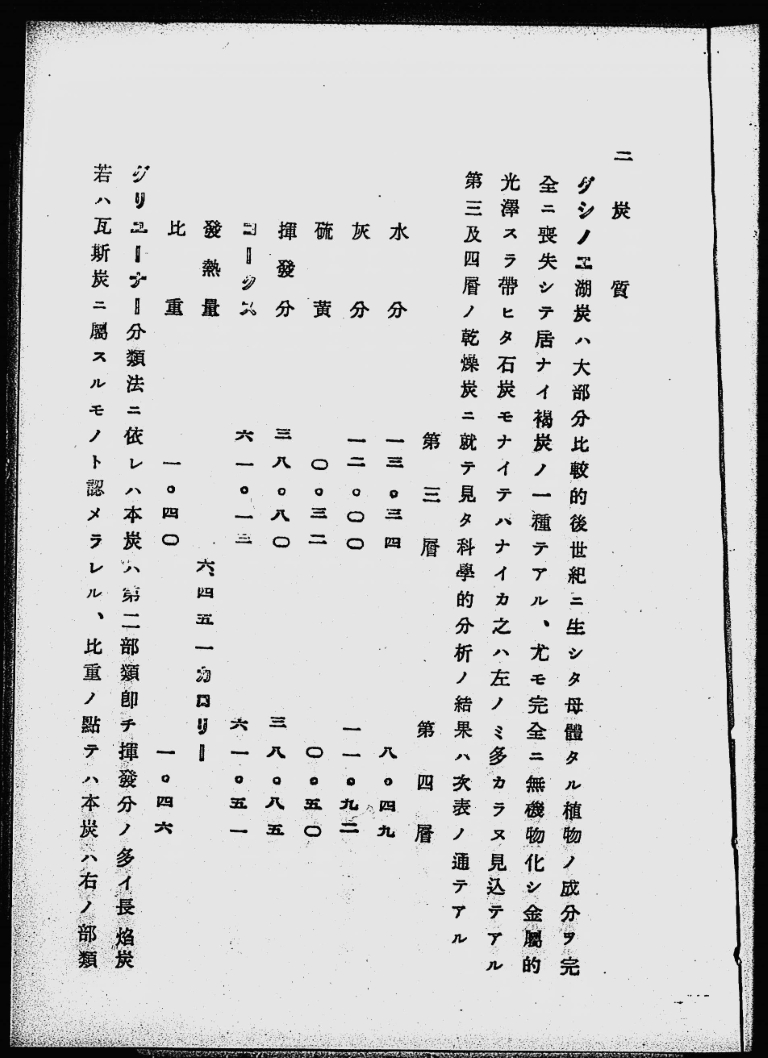 二 炭質
ダシノエ湖炭ハ大部分比較的後世紀ニ生シタ母體タル植物ノ成分ヲ完
全ニ喪失シテ居ナイ褐炭ノ一種テアル、尤モ完全ニ無磯物化シ金屬的
光澤スラ帶ヒタ石炭モナイテハナイカ之ハ左ノミ多カラヌ見込テアル
第三及四層ノ乾燥炭ニ就テ見タ科學的分析ノ結果ハ次表ノ通テアル
第三層 第四層
水分 一三。三四 八。四九
灰分 一二。〇〇 一一。九二
硫黄 〇。三二 〇。五〇
揮發分 三八。八〇 三八。八五
コークス 六一。一三 六一。五一
發熱量 六四五一カロリー
比重 一。四〇 一。四六
グリユーナー分類法ニ依レハ本炭ハ第二部類卽チ揮發分ノ多イ長焰炭
若ハ瓦斯炭ニ屬スルモノト認メラレル、比重ノ點テハ本炭ハ右ノ部類